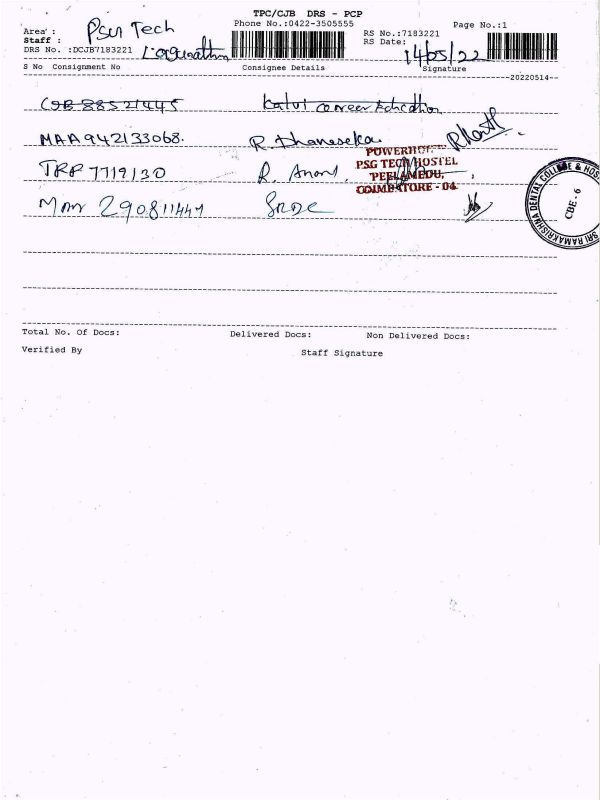 TPC/CJB DRS - PCP
Phone No.:0422-3505555
Page No.:1
Area : PSG Tech
Staff :
DRS No. :DCJB7183221
RS No.:7183221
RS Date: 14/05/22
S No Consignment No Consignee Details Signature
20220514
CJB 88521445 Career Education
MAA942133068. R. Dhanaseka.
TRP 7719130 R. Anand.
POWERHOUSE
PSG TECH HOSTEL
PEELAMEDU,
COIMBATORE - 04.
290811447 SRDC
SRI RAMAKRISHNA DENTAL COLLEGE & HOS
CBE - 6
Total No. Of Docs: Delivered Docs: Non Delivered Docs:
Verified By Staff Signature